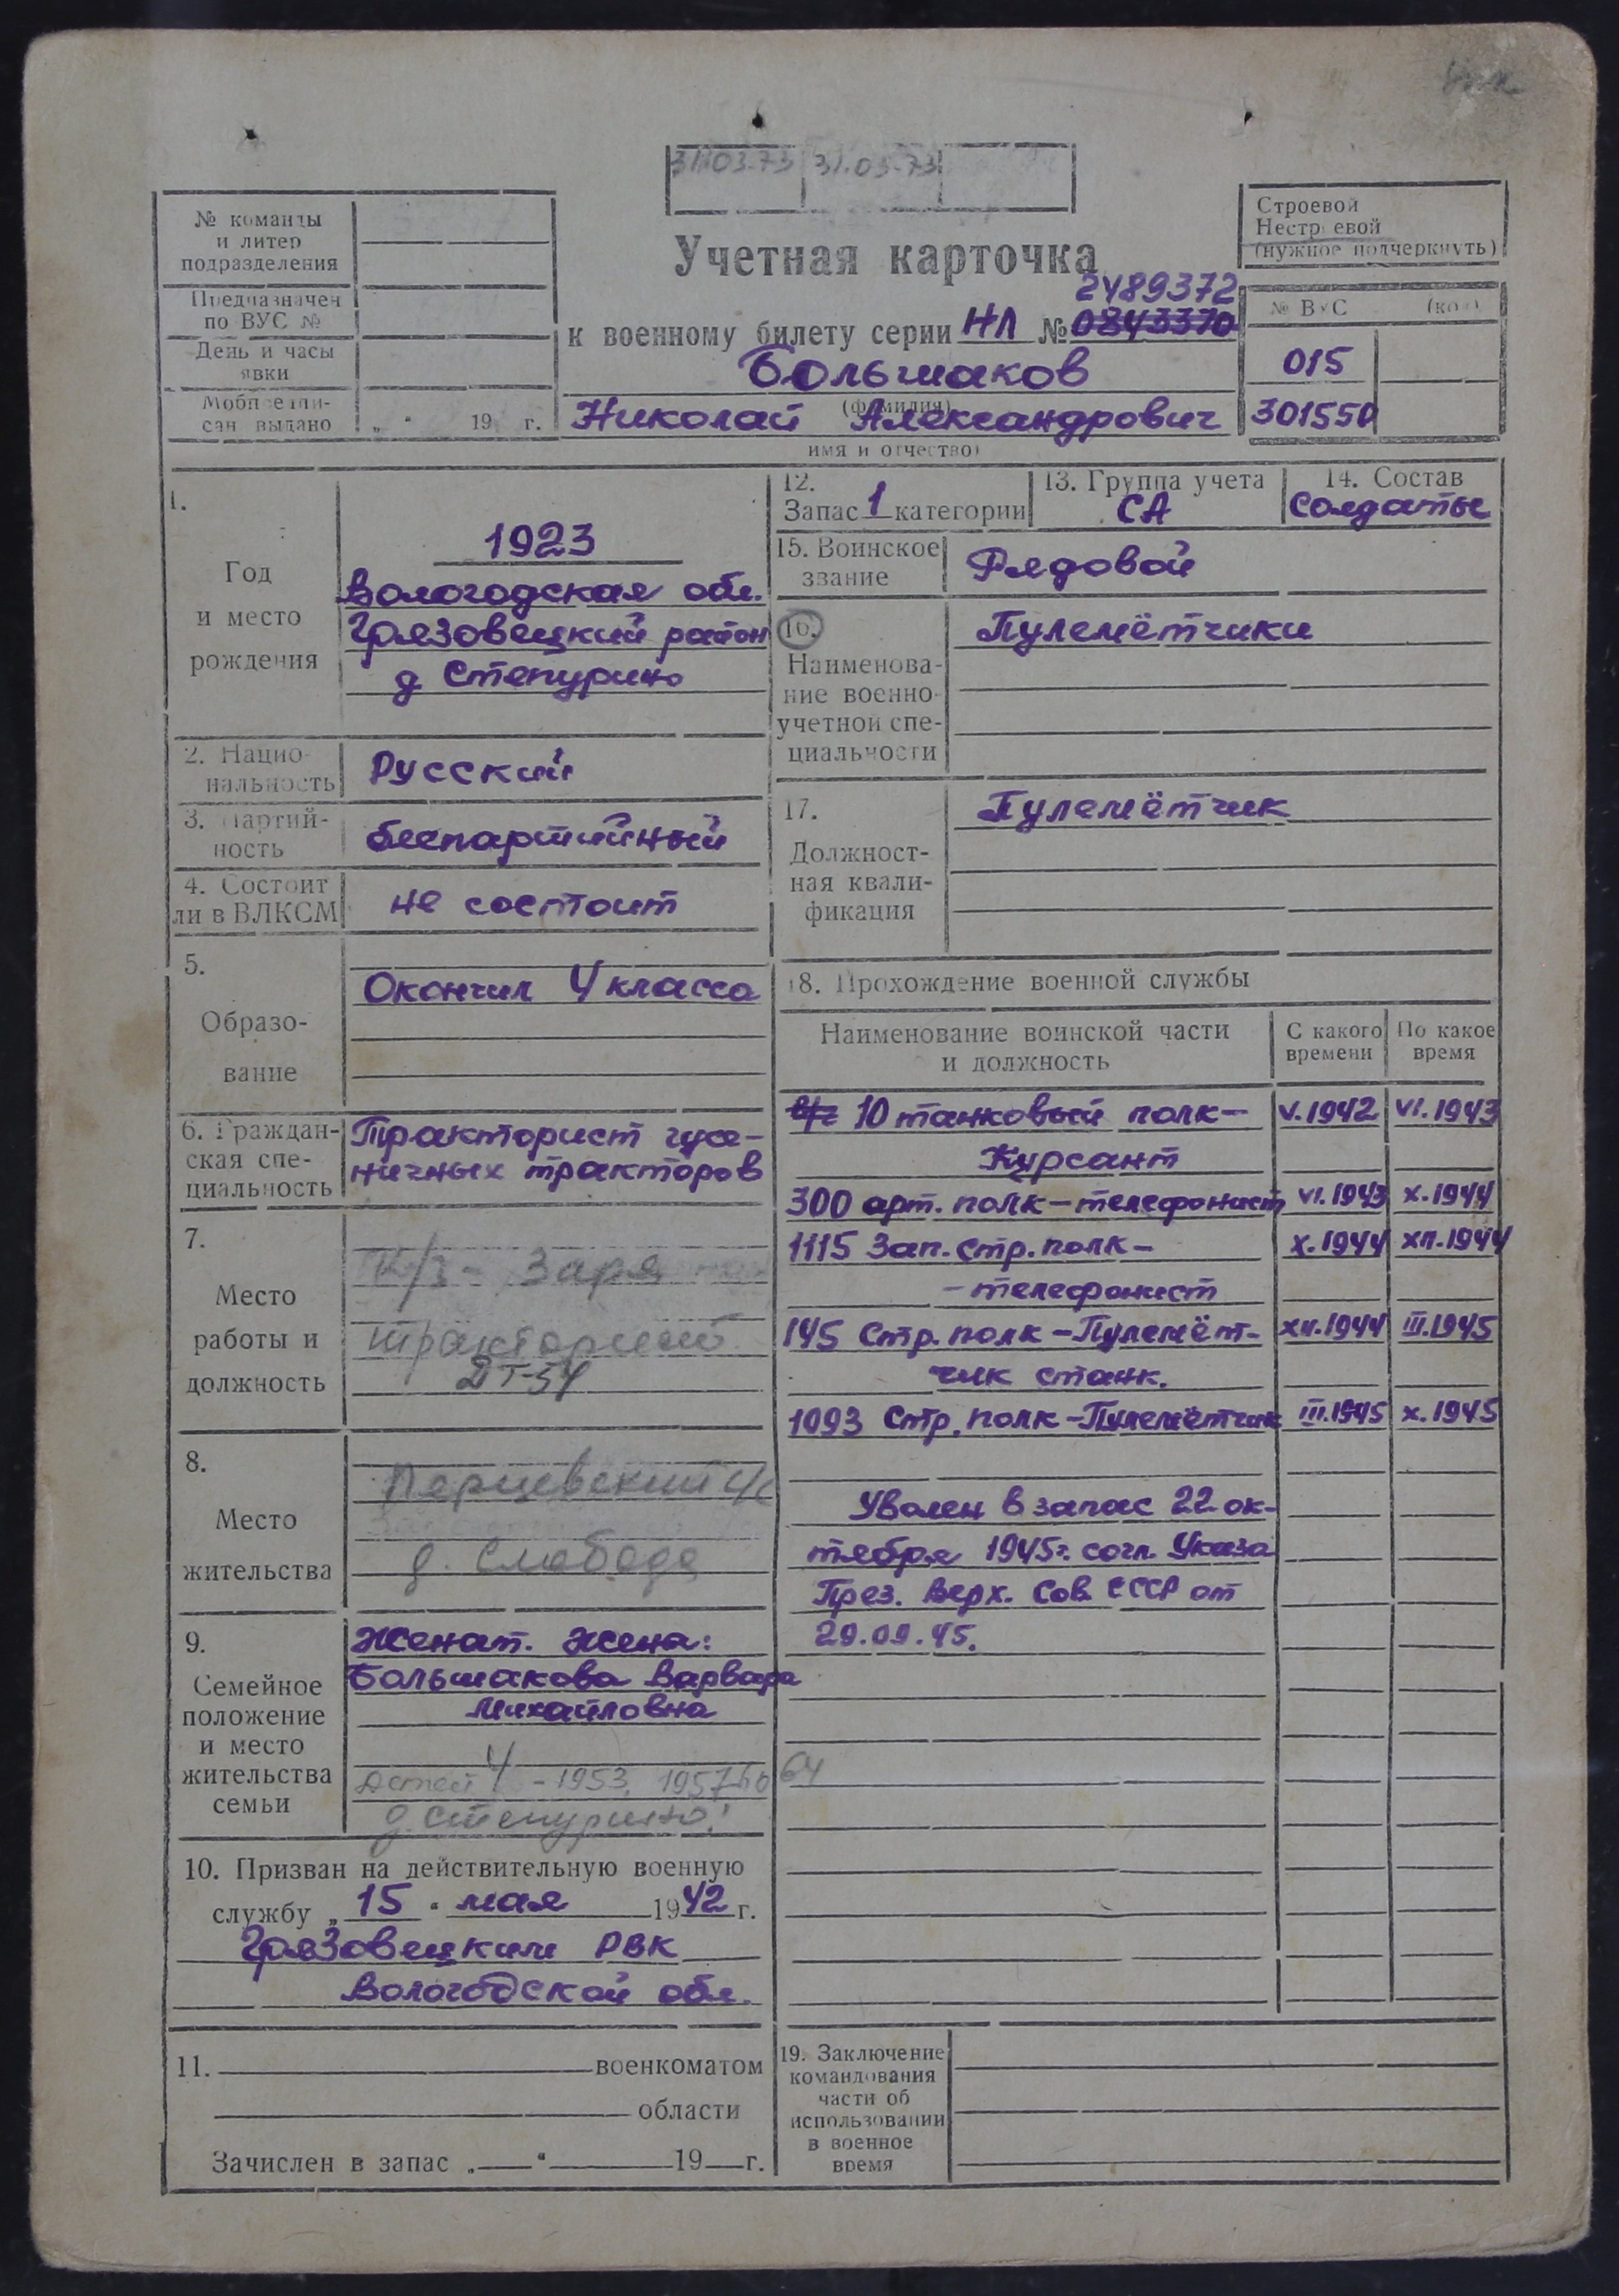 31.03.73 31.03.73
№ команды
и литер
подразделения
Предназначен
по ВУС №
День и часы
явки
Мобпредпи-
сан выдано „ " 19 г.
Учетная карточка
2489372
к военному билету серии НЛ № 0843370
Большаков
(фамилия)
Николай Александрович
имя и отчество)
Строевой
Нестроевой
(нужное подчеркнуть)
№ ВУС (код)
015
301550
1.
Год
и место
рождения
1923
Вологодская обл.
Грязовецкий район
д Степурино
2. Нацио-
нальность
Русский
3. Партий-
ность
беспартийный
4. Состоит
ли в ВЛКСМ
не состоит
5.
Образо-
вание
Окончил 4 класса
6. Граждан-
ская спе-
циальность
Тракторист гусе-
ничных тракторов
7.
Место
работы и
должность
К/з - Заря
тракторист
ДТ-54
8.
Место
жительства
Перцевский с/с
д. Слобода
9.
Семейное
положение
и место
жительства
семьи
Женат. Жена:
Большакова Варвара
Михайловна
4
Детей - 1953, 1957 60 64
д. Степурино
10. Призван на действительную военную
службу „ 15 " мая 1942 г.
Грязовецким РВК
Вологодской обл.
11. военкоматом
области
Зачислен в запас „ " 19 г.
12.
Запас 1 категории
13. Группа учета
СА
14. Состав
Солдаты
15. Воинское
звание
Рядовой
16.
Наименова-
ние военно-
учетной спе-
циальности
Пулемётчики
17.
Должност-
ная квали-
фикация
Пулемётчик
18. Прохождение военной службы
Наименование воинской части
и должность
С какого
времени
По какое
время
10 танковый полк - V.1942 VI.1943
Курсант
300 арт. полк - телефонист VI.1943 X.1944
1115 Зап. стр. полк - X.1944 XII.1944
- телефонист
145 Стр. полк - Пулемёт- XII.1944 III.1945
чик станк.
1093 Стр. полк - Пулемётчик III.1945 X.1945
Уволен в запас 22 ок-
тября 1945г. согл. Указа
През. Верх. Сов. СССР от
29.09.45.
19. Заключение
командования
части об
использовании
в военное
время